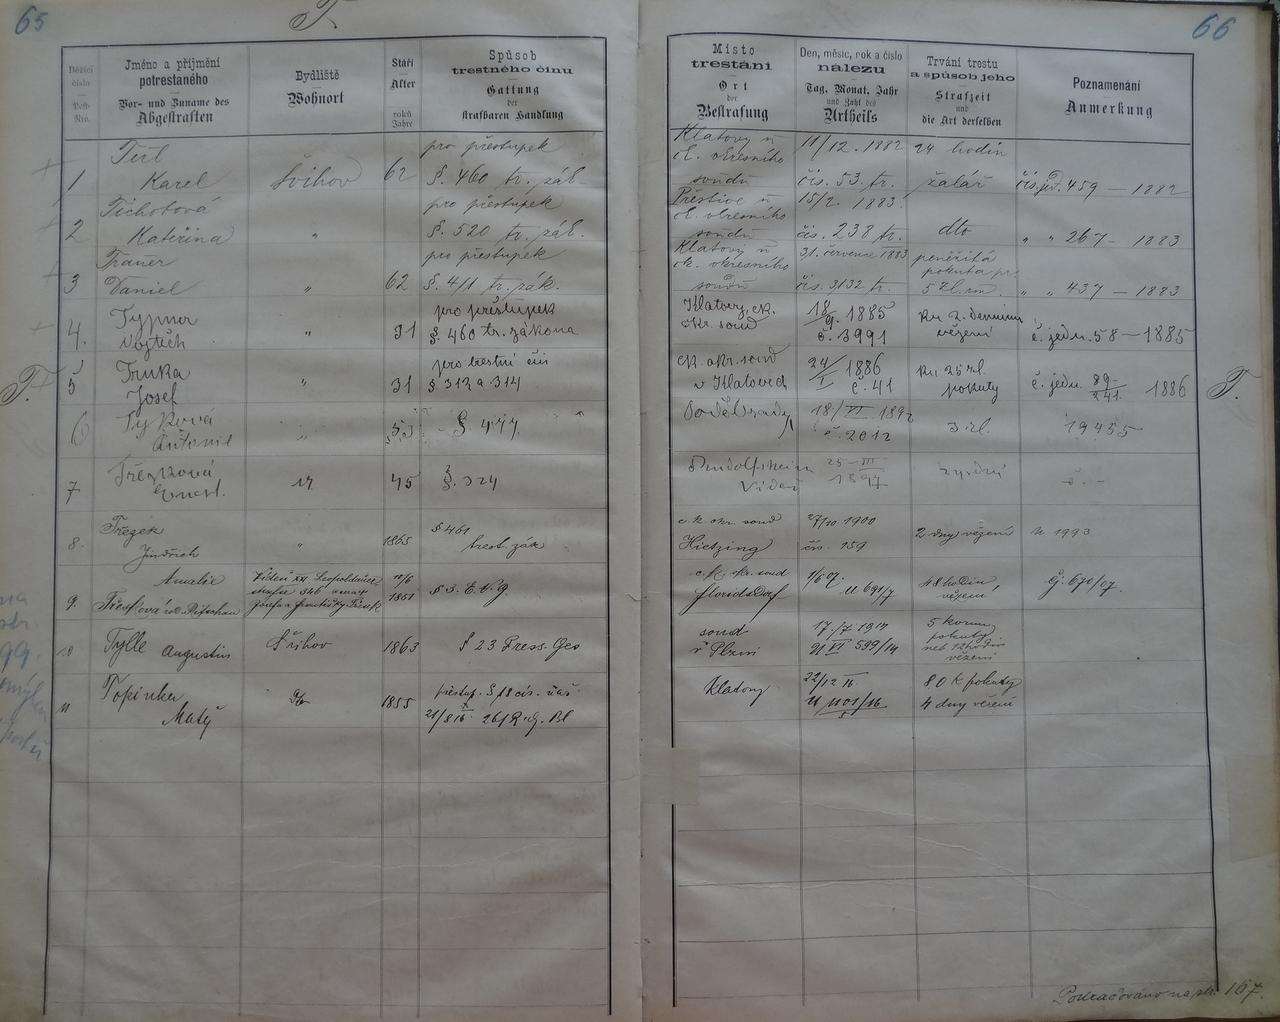 65
T.
66
Běžící číslo
Post-Nro.
Jméno a příjmění
potrestaného
Vor- und Zuname des
Abgestraften
Bydliště
Wohnort
Stáří
Alter
roků
Jahre
Spůsob
trestného činu
Gattung
der
strafbaren Handlung
Místo
trestání
Ort
der
Bestrafung
Den, měsíc, rok a číslo
nálezu
Tag, Monat, Jahr
und Zahl des
Urtheils
Trvání trestu
a spůsob jeho
Strafzeit
und
die Art derselben
Poznamenání
Anmerkung
1
Karel
Švihov
62
pro přestupek
§. 460 tr. zák.
Klatovy u
c. k. okresního
soudu
11/12. 1882
čís. 53. tr.
24 hodin
žalář
čís. jd. 459 – 1882
2
Tichotová
Kateřina
"
pro přestupek
§. 520 tr. zák.
Přeštice u
c. k. okresního
soudu
15/2. 1883.
čís. 238 tr.
dto
" " 267 – 1883
3
Trauer
Daniel
"
62
pro přestupek
§. 411 tr. zák.
Klatovy u
ck. okresního
soudu
31. července 1883
čís. 3132 tr.
peněžitá
pokuta pr.
5 zl. rm
" " 437 – 1883
4.
Vojtěch
"
31
pro přestupek
§. 460 tr. zákona
Klatovy, ck.
okr. soud
18/9. 1885
č. 3991
ku 2. dennímu
vězení
č. jedn. 58 – 1885
T.
5
Truka
Josef
"
31
pro trestní čin
§ 312 a 314
ck. okr. soud
v Klatovech
24/I 1886
č. 41
ku 25 zl.
pokuty
č. jedn. 89/241 1886
T.
6
Antonie
"
53
§ 477.
Poděbrady
18/VI 1892
č. 2012
3 zl.
19455
7
45
§. 324
Rudolfsheim
Vídeň
25–III
1897
8.
Třezek
Jindřich
"
1865
§ 461
trest. zák
c. k. okr. soud
Hietzing
27/10 1900
čís. 159
2 dny vězení
N 1993
9.
Amalie
Vídeň XXI. Leopoldauer
1851
§ 3. E. V. G
c. k. okr. soud
Floridsdorf
1/6 07.
U 691/7
48 hodin
vězení
G. 670/07.
10
Tylle Augustin
Švihov
1863
§ 23 Press. Ges
soud
v Plzni
17/7 1914
U VI 599/14
5 korun
pokuty
neb 12 hodin
vězení
11
Topinka
Matěj
1855
přestup. § 18 cís. nař.
21/8 16 261 R. G. Bl
Klatovy
22/12 16
U 1101/16
80 K pokuty
4 dny vězení
Pokračováno na str. 167.